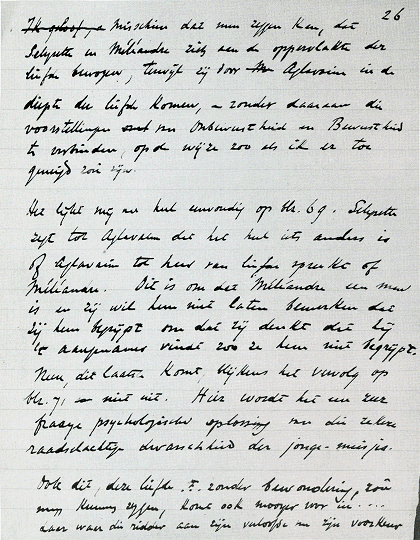 26
Ik geloof, Misschien dat men zeggen kan, dat
Selysette en Méliandre zich aan de oppervlakte der
liefde bewogen, terwijl zij door Aglavaine in de
diepte der liefde komen, – zonder daaraan die
voorstellingen van Onbewustheid en Bewustheid
te verbinden, op de wijze zoo als ik er toe
geneigd zou zijn.
Het lijkt mij nu heel eenvoudig op blz. 69. Selysette
zegt tot Aglavaine dat het heel iets anders is
of Aglavaine tot haar van liefde spreekt of
Méliandre. Dit is om dat Méliandre een man
is en zij wil hem niet laten bemerken dat
zij hem begrijpt om dat zij denkt dat hij
't aangenamer vindt zoo ze hem niet begrijpt.
Neen, dit laatste komt, blijkens het vervolg op
blz. 71 niet uit. Hier wordt het een zeer
fraaye psychologische oplossing van die zekere
raadselachtige dwarsheid der jonge-meisjes.
Ook dit, deze liefde zonder bewondering, zou
men kunnen zeggen, komt ook mooyer voor in ....
daar waar die ridder aan zijn verloofde van zijn voorkeur